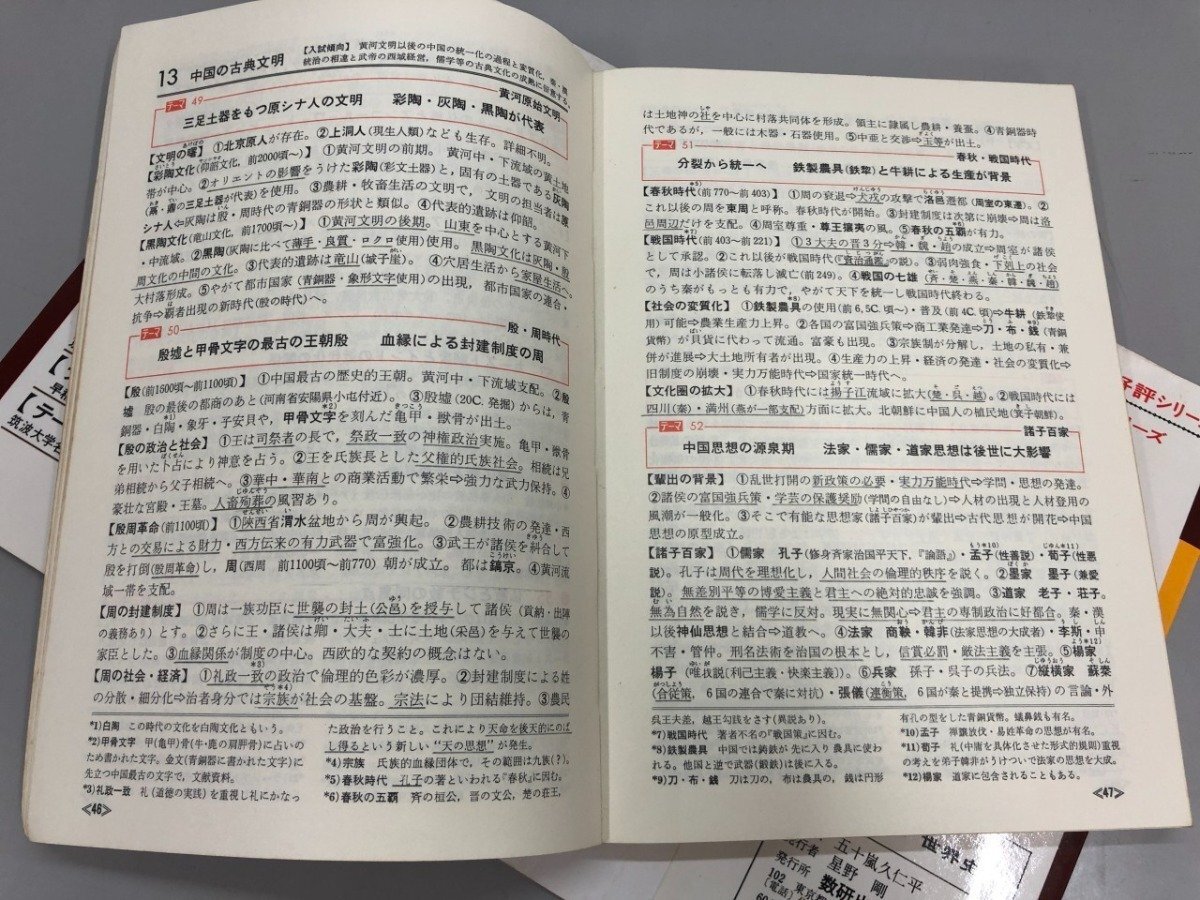 13 中国の古典文明
【入試傾向】 黄河文明以後の中国の統一化の過程と変質化，秦・漢
統治の相違と武帝の西域経営，儒学等の古典文化の成熟に留意する。
テーマ 49
黄河原始文明
三足土器をもつ原シナ人の文明 彩陶・灰陶・黒陶が代表
【文明の曙】 ①北京原人が存在。②上洞人(現生人類)なども生存。詳細不明。
【彩陶文化】(仰韶文化，前2000頃〜) ①黄河文明の前期。黄河中・下流域の黄土地
帯が中心。②オリエントの影響をうけた彩陶(彩文土器)と，固有の土器である灰陶
(鬲・鼎の三足土器が代表)を使用。③農耕・牧畜生活の文明で，文明の担当者は原
シナ人⇔灰陶は殷・周時代の青銅器の形状と類似。④代表的遺跡は仰韶。
【黒陶文化】(竜山文化，前1700頃〜) ①黄河文明の後期。山東を中心とする黄河下
・中流域。②黒陶(灰陶に比べて薄手・良質・ロクロ使用)使用。黒陶文化は灰陶・殷
周文化の中間の文化。③代表的遺跡は竜山(城子崖)。④穴居生活から家屋生活へ。
大村落形成。⑤やがて都市国家(青銅器・象形文字使用)の出現，都市国家の連合・
抗争⇨覇者出現の新時代(殷の時代)へ。
テーマ 50
殷・周時代
殷墟と甲骨文字の最古の王朝殷 血縁による封建制度の周
【殷】(前1600頃〜前1100頃) ①中国最古の歴史的王朝。黄河中・下流域支配。②殷
墟 殷の最後の都商のあと(河南省安陽県小屯付近)。③殷墟(20C.発掘)からは，青
銅器・白陶・象牙・子安貝や，甲骨文字を刻んだ亀甲・獣骨が出土。
【殷の政治と社会】 ①王は司祭者の長で，祭政一致の神権政治実施。亀甲・獣骨
を用いた卜占により神意を占う。②王を氏族長とした父権的氏族社会。相続は兄
弟相続から父子相続へ。③華中・華南との商業活動で繁栄⇨強力な武力保持。④
豪壮な宮殿・王墓。人畜殉葬の風習あり。
【殷周革命】(前1100頃) ①陝西省渭水盆地から周が興起。②農耕技術の発達・西
方との交易による財力・西方伝来の有力武器で富強化。③武王が諸侯を糾合して
殷を打倒(殷周革命)し，周(西周 前1100頃〜前770)朝が成立。都は鎬京。④黄河流
域一帯を支配。
【周の封建制度】 ①周は一族功臣に世襲の封土(公邑)を授与して諸侯(貢納・出陣
の義務あり)とす。②さらに王・諸侯は卿・大夫・士に土地(采邑)を与えて世襲の
家臣とした。③血縁関係が制度の中心。西欧的な契約の概念はない。
【周の社会・経済】 ①礼政一致の政治で倫理的色彩が濃厚。②封建制度による姓
の分散・細分化⇨治者身分では宗族が社会の基盤。宗法により団結維持。③農民
*1)白陶 この時代の文化を白陶文化ともいう。
*2)甲骨文字 甲(亀甲)骨(牛・鹿の肩胛骨)に占いの
ため書かれた文字。金文(青銅器に書かれた文字)に
先立つ中国最古の文字で，文献資料。
*3)礼政一致 礼(道徳の実践)を重視し礼にかなっ
た政治を行うこと。これにより天命を後天的にのば
し得るという新しい“天の思想”が発生。
*4)宗族 氏族的血縁団体で，その範囲は九族(？)。
*5)春秋時代 孔子の著といわれる『春秋』に因む。
*6)春秋の五覇 斉の桓公，晋の文公，楚の荘王，
≪46≫
は土地神の社を中心に村落共同体を形成。領主に隷属し農耕・養蚕。④青銅器時
代であるが，一般には木器・石器使用。⑤中亜と交渉⇨玉等が出土。
テーマ 51
春秋・戦国時代
分裂から統一へ 鉄製農具(鉄犂)と牛耕による生産が背景
【春秋時代】(前770〜前403) ①周の衰退⇨犬戎の攻撃で洛邑遷都(周室の東遷)。②
これ以後の周を東周と呼称。春秋時代が開始。③封建制度は次第に崩壊⇨周は洛
邑周辺だけを支配。④周室尊重・尊王攘夷の風。⑤春秋の五覇が有力。
【戦国時代】(前403〜前221) ①3大夫の晋3分⇨韓・魏・趙の成立⇨周室が諸侯
として承認。②これ以後が戦国時代(『資治通鑑』の説)。③弱肉強食・下剋上の社会
で，周は小諸侯に転落し滅亡(前249)。④戦国の七雄(斉・楚・燕・秦・韓・魏・趙)
のうち秦がもっとも有力で，やがて天下を統一し戦国時代終わる。
【社会の変質化】 ①鉄製農具の使用(前6,5C.頃〜)・普及(前4C.頃)⇨牛耕(鉄犂使
用)可能⇨農業生産力上昇。②各国の富国強兵策⇨商工業発達⇨刀・布・銭(青銅
貨幣)が貝貨に代わって流通。富豪も出現。③宗族制が分解し，土地の私有・兼
併が進展⇨大土地所有者が出現。④生産力の上昇・経済の発達・社会の変質化⇨
旧制度の崩壊・実力万能時代⇨国家統一時代へ。
【文化圏の拡大】 ①春秋時代には揚子江流域に拡大(楚・呉・越)。②戦国時代には
四川(秦)・満州(燕が一部支配)方面に拡大。北朝鮮に中国人の植民地(箕子朝鮮)。
テーマ 52
諸子百家
中国思想の源泉期 法家・儒家・道家思想は後世に大影響
【輩出の背景】 ①乱世打開の新政策の必要・実力万能時代⇨学問・思想の発達。
②諸侯の富国強兵策・学芸の保護奨励(学問の自由なし)⇨人材の出現と人材登用の
風潮が一般化。③そこで有能な思想家(諸子百家)が輩出⇨古代思想が開花⇨中国
思想の原型成立。
【諸子百家】 ①儒家 孔子(修身斉家治国平天下，『論語』)・孟子(性善説)・荀子(性悪
説)。孔子は周代を理想化し，人間社会の倫理的秩序を説く。②墨家 墨子(兼愛
説)。無差別平等の博愛主義と君主への絶対的忠誠を強調。③道家 老子・荘子。
無為自然を説き，儒学に反対。現実に無関心⇨君主の専制政治に好都合。秦・漢
以後神仙思想と結合⇨道教へ。④法家 商鞅・韓非(法家思想の大成者)・李斯・申
不害・管仲。刑名法術を治国の根本とし，信賞必罰・厳法主義を主張。⑤楊家
楊子(唯我説(利己主義・快楽主義))。⑥兵家 孫子・呉子の兵法。⑦縦横家 蘇秦
(合従策，6国の連合で秦に対抗)・張儀(連衡策，6国が秦と提携⇨独立保持)の言論・外
呉王夫差，越王勾践をさす(異説あり)。
*7)戦国時代 著者不名の『戦国策』に因む。
*8)鉄製農具 中国では鋳鉄が先に入り農具に使わ
れる。他国と逆で武器(鍛鉄)は後に入る。
*9)刀・布・銭 刀は刀の，布は農具の，銭は円形
有孔の型をした青銅貨幣。蟻鼻銭も有名。
*10)孟子 禅譲放伐・易姓革命の思想が有名。
*11)荀子 礼(中庸を具体化させた形式的規制)重視
の考えを弟子韓非がうけついで法家の思想を大成。
*12)楊家 道家に包含されることもある。
≪47≫
早稲
【テー
筑波大学名
好評シリー
ーズ
世界史
五十嵐久仁平
発行者 星野 剛
発行所 数研出
102 東京都
(電話)